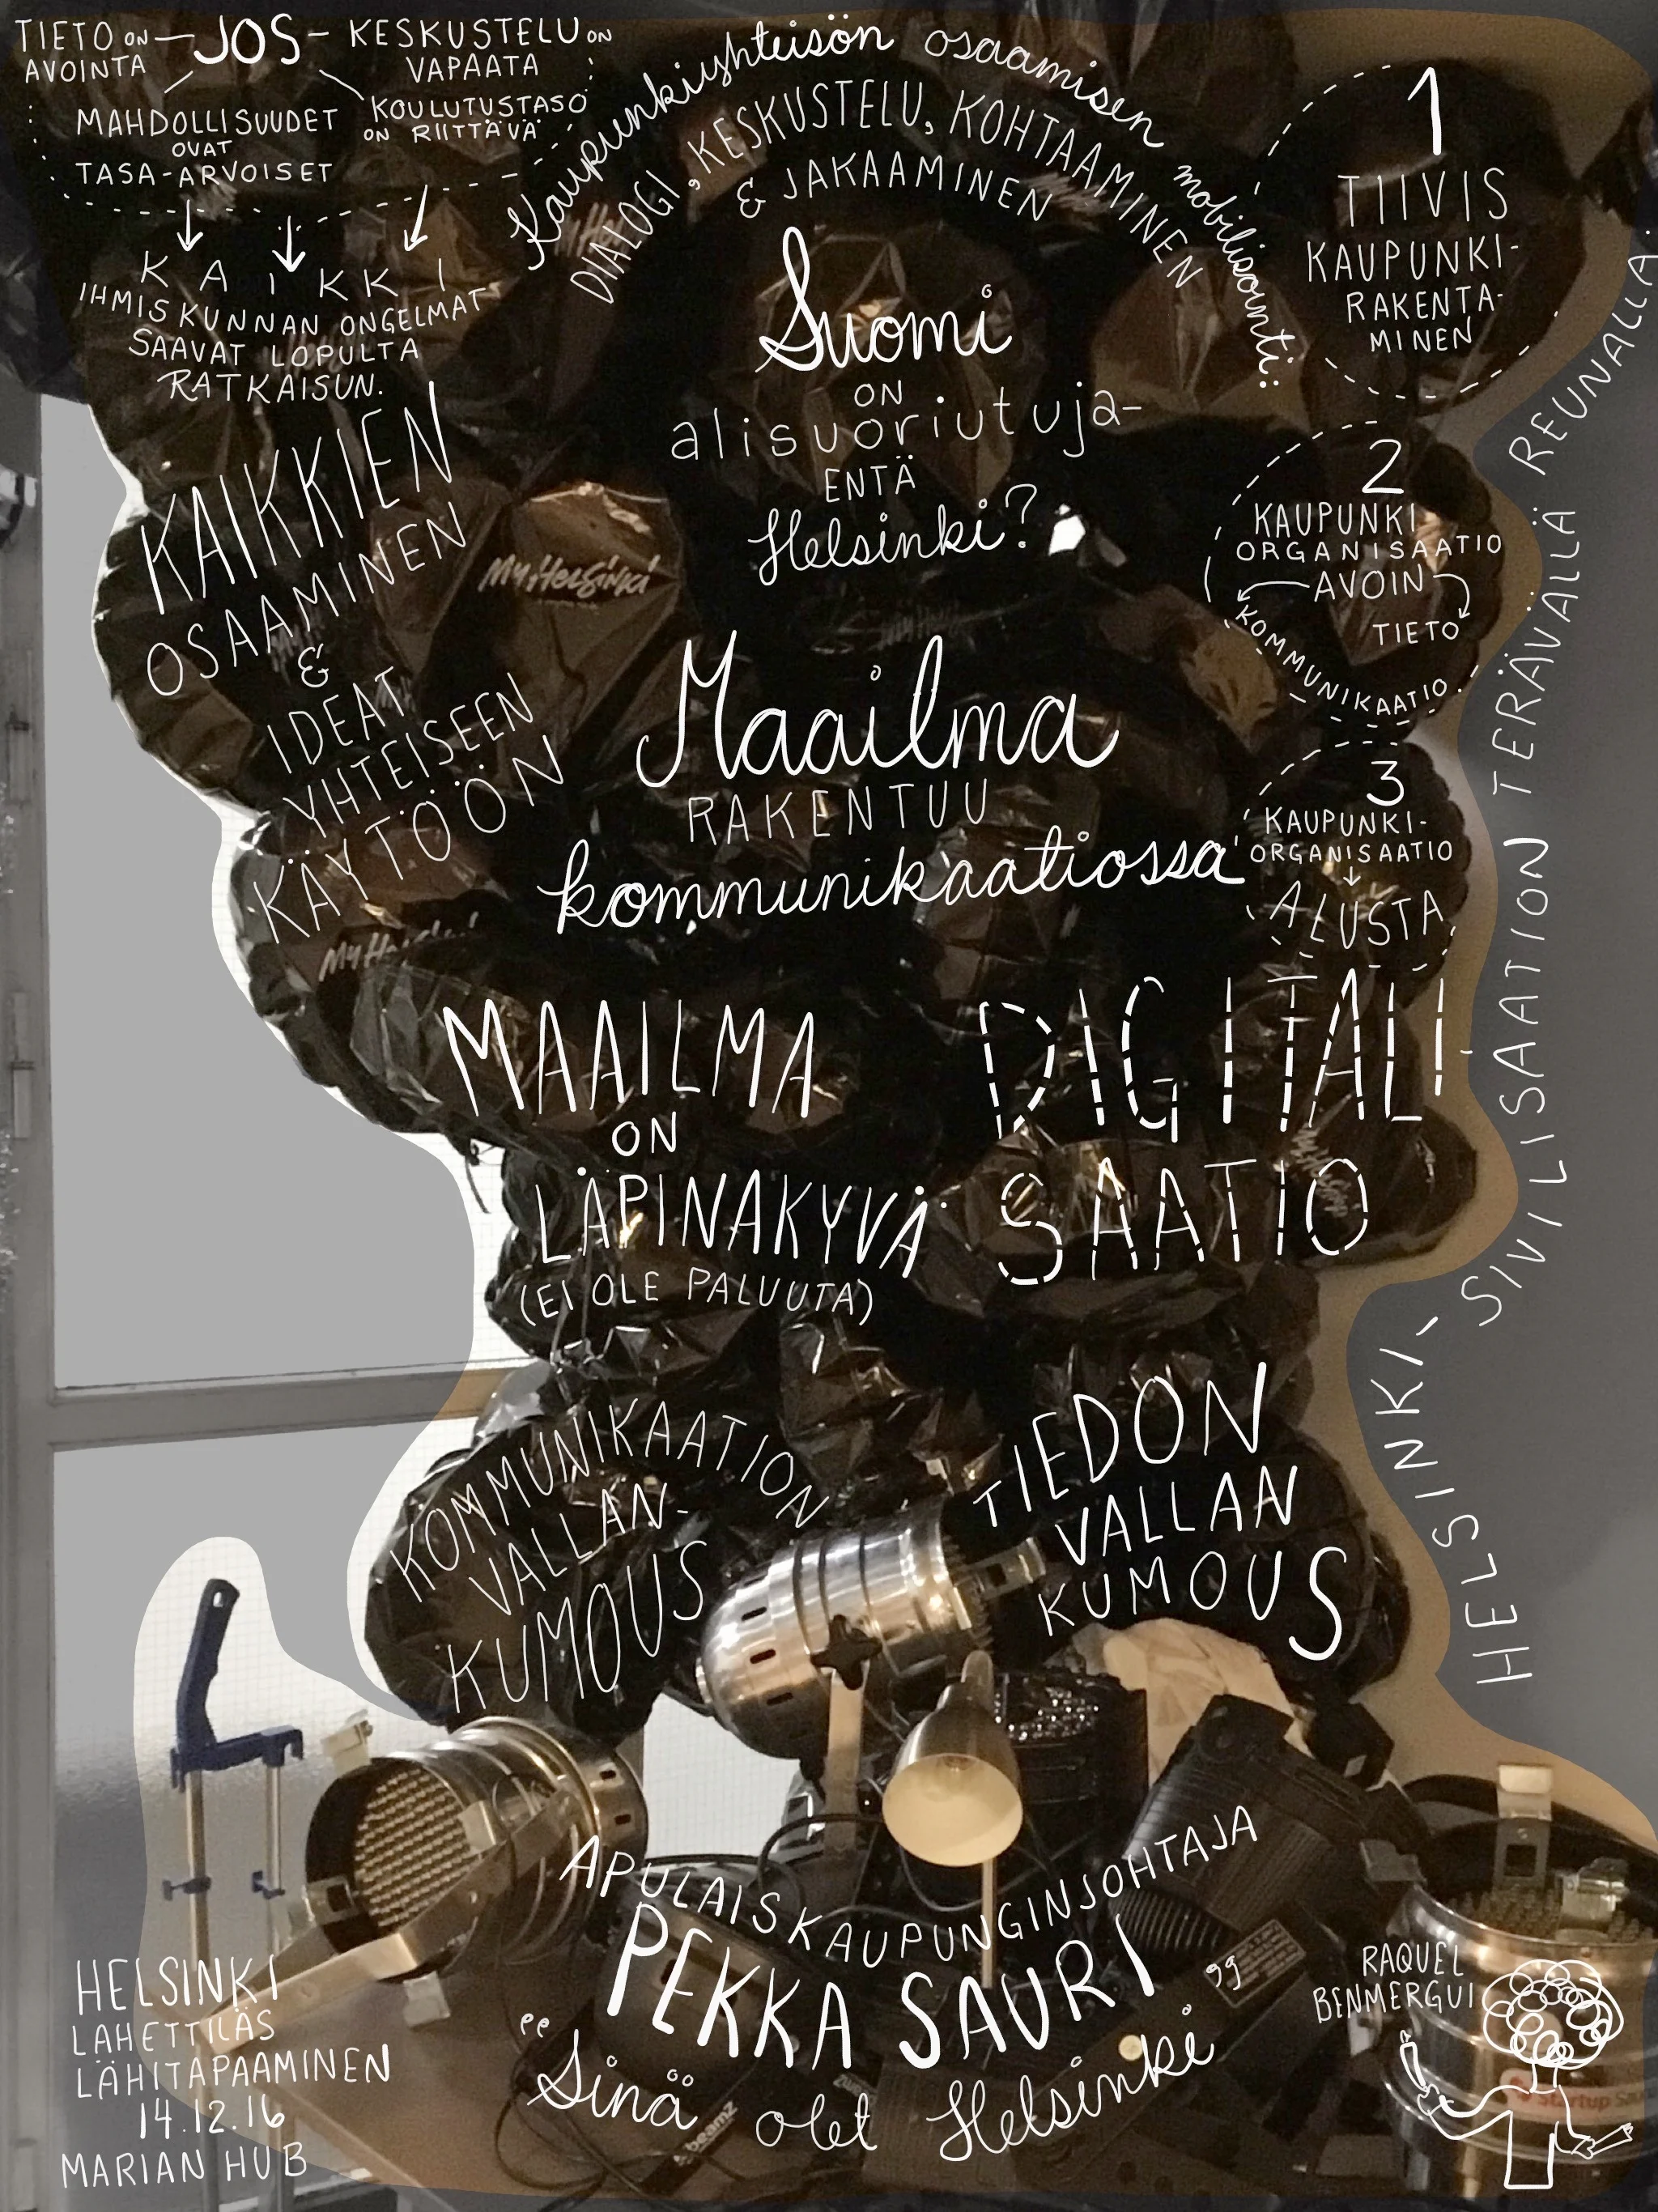 TIETO ON
AVOINTA
JOS
KESKUSTELU ON
VAPAATA
MAHDOLLISUUDET
OVAT
TASA-ARVOISET
KOULUTUSTASO
ON RIITTÄVÄ
KAIKKI
IHMISKUNNAN ONGELMAT
SAAVAT LOPULTA
RATKAISUN.
Kaupunkiyhteisön osaamisen mobilisointi:
DIALOGI, KESKUSTELU, KOHTAAMINEN
& JAKAAMINEN
Suomi
ON
alisuoriutuja-
ENTÄ
Helsinki?
1
TIIVIS
KAUPUNKI-
RAKENTA-
MINEN
2
KAUPUNKI
ORGANISAATIO
AVOIN
TIETO
KOMMUNIKAATIO
3
KAUPUNKI-
ORGANISAATIO
ALUSTA
HELSINKI, SIVILISAATION TERÄVÄLLÄ REUNALLA.
KAIKKIEN
OSAAMINEN
&
IDEAT
YHTEISEEN
KÄYTÖÖN
MyHelsinki
Maailma
RAKENTUU
kommunikaatiossa
MAAILMA
ON
LÄPINÄKYVÄ
(EI OLE PALUUTA)
DIGITALI
SAATIO
KOMMUNIKAATION
VALLAN-
KUMOUS
TIEDON
VALLAN
KUMOUS
APULAISKAUPUNGINJOHTAJA
PEKKA SAURI
"Sinä olet Helsinki"
beamz
HELSINKI
LÄHETTILÄS
LÄHITAPAAMINEN
14.12.16
MARIAN HUB
RAQUEL
BENMERGUI
Startup